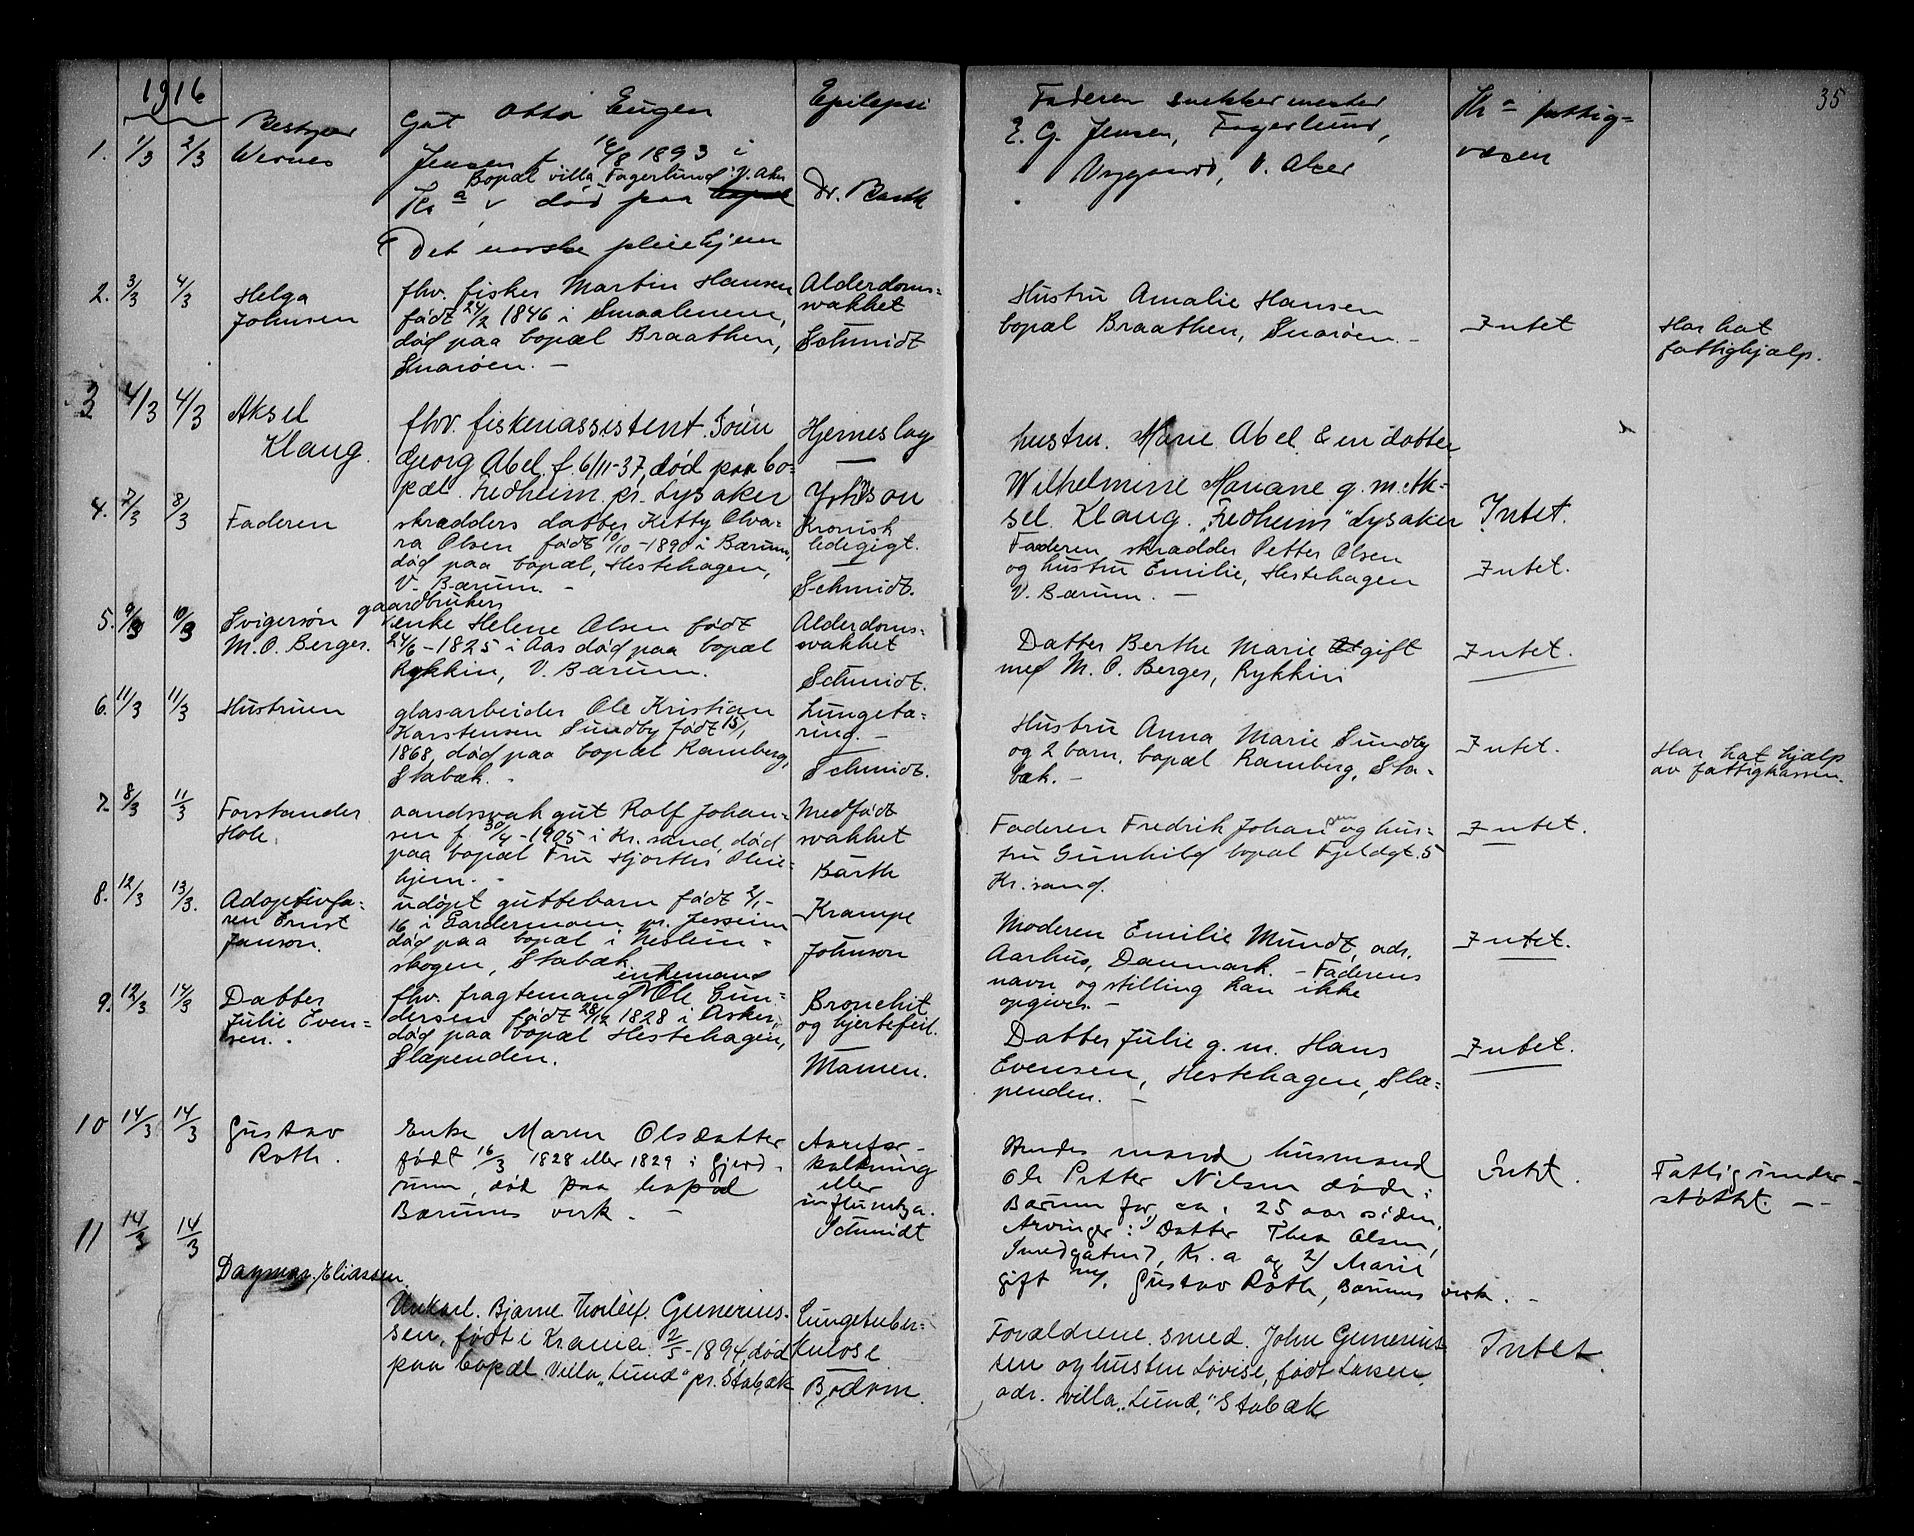 1916
35
1. 1/3 2/3 Bestyrer
Wernes
Gut Otto Eugen
Jensen f. 1893 i
Bopæl villa Fagerlund V. Aker
Kr a v død paa bopæl
Det norske pleiehjem
Epilepsi
Dr. Barth
Faderen snekkermester
E. G. Jensen, Fagerlund,
V. Aker
Kr a fattig=
væsen
2. 3/3 4/3 Helga
Johnsen
fhv. fisker Martin Hansen
født 24/2 1846 i Smaalenene,
død paa bopæl Braathen,
Snarøen. —
Alderdoms=
svakhet
Schmidt
Hustru Amalie Hansen
bopæl Braathen, Snarøen. —
Intet
Har hat
fattighjælp.
3 4/3 4/3 Aksel
Klaug.
fhv. fiskeriassistent Sørin
Georg Abel f. 6/11-37, død paa bo=
pæl Fredheim pr. Lysaker
Hjerneslag
Johnson
hustru. Marie Abel & en datter
Wilhelmine Mariane g. m. Ak=
sel Klaug. "Fredheim" Lysaker
Intet.
4. 7/3 8/3 Faderen
skrædders datter Ketty Olva=
ra Olsen født 10/10-1890 i Bærum,
død paa bopæl, Hestehagen,
V. Bærum. —
Kronisk
ledegigt.
Schmidt.
Faderen skrædder Petter Olsen
og hustru Emilie, Hestehagen
V. Bærum. —
Intet.
5. 9/3 10/3 Svigersøn
M. O. Berger.
gaardbrukers
enke Helene Olsen født
24/6-1825 i Aas død paa bopæl
Rykkin, V. Bærum.
Alderdoms=
svakhet
Schmidt.
Datter Berthe Marie gift
med M. O. Berger, Rykkin
Intet.
6. 11/3 11/3 Hustruen
glasarbeider Ole Kristian
Karstensen Sundby født 15/1
1868, død paa bopæl Ramberg,
Stabæk. -
Lungetæ=
ring. —
Schmidt.
Hustru Anna Marie Sundby
og 2 barn, bopæl Ramberg, Sta=
bæk. -
Intet.
Har hat hjælp
av fattigkassen.
7. 8/3 11/3 Forstander
Hole.
aandssvak gut Rolf Johan=
sen f. 30/4-1905 i Kr. sand, død
paa bopæl Fru Hjorths Pleie=
hjem. -
Medfødt
svakhet
Barth
Faderen Fredrik Johansen og hus=
tru Gunhild bopæl Fjeldgt. 5
Kr. sand.
Intet.
8. 12/3 13/3. Adoptivfa=
ren Ernst
Janson.
udøpt guttebarn født 2/1-
16 i Gardermoen pr. Jessheim
død paa bopæl i Nesluin=
skogen, Stabæk
Krampe
Johnson
Moderen Emilie Mundt, adr.
Aarhus, Danmark. - Faderens
navn og stilling kan ikke
opgives. —
Intet.
9. 12/3 14/3 Datter
Julie Even=
sen.
fhv. fragtemand enkemand Ole Gun=
dersen født 28/12 1828 i Asker,
død paa bopæl Hestehagen,
Slæpenden.
Bronchit
og hjertefeil.
Mamen.
Datter Julie g. m. Hans
Evensen, Hestehagen, Slæ=
penden. —
Intet.
10 14/3 14/3 Gustav
Roth.
Enke Maren Olsdatter
født 16/3 1828 eller 1829 i Gjerd=
rum, død paa bopæl
Bærums verk. —
Aarefor-
kalkning
eller
influentza.
Schmidt
Hendes mand, husmand
Ole Petter Nilsen døde i
Bærum for ca. 25 aar siden.
Arvinger: 1/ Datter Thea Olsen,
Smedgaten 7, Kr. a og 2/ Marie
gift m/. Gustav Roth, Bærums verk. —
Intet.
Fattigunder-
støttet. —
11 14/3 14/3
Dagmar Eliassen.
Unkarl. Bjarne Thorleif Gunerius-
sen, født i Krania. 2/5-1894, død
paa bopæl. Villa „Lund" pr. Stabæk
Lungetuber=
kulose
Bodom.
Forældrene smed. John Gunerius
sen og hustru Lovise, født Larsen,
adr. villa „Lund," Stabæk
Intet.